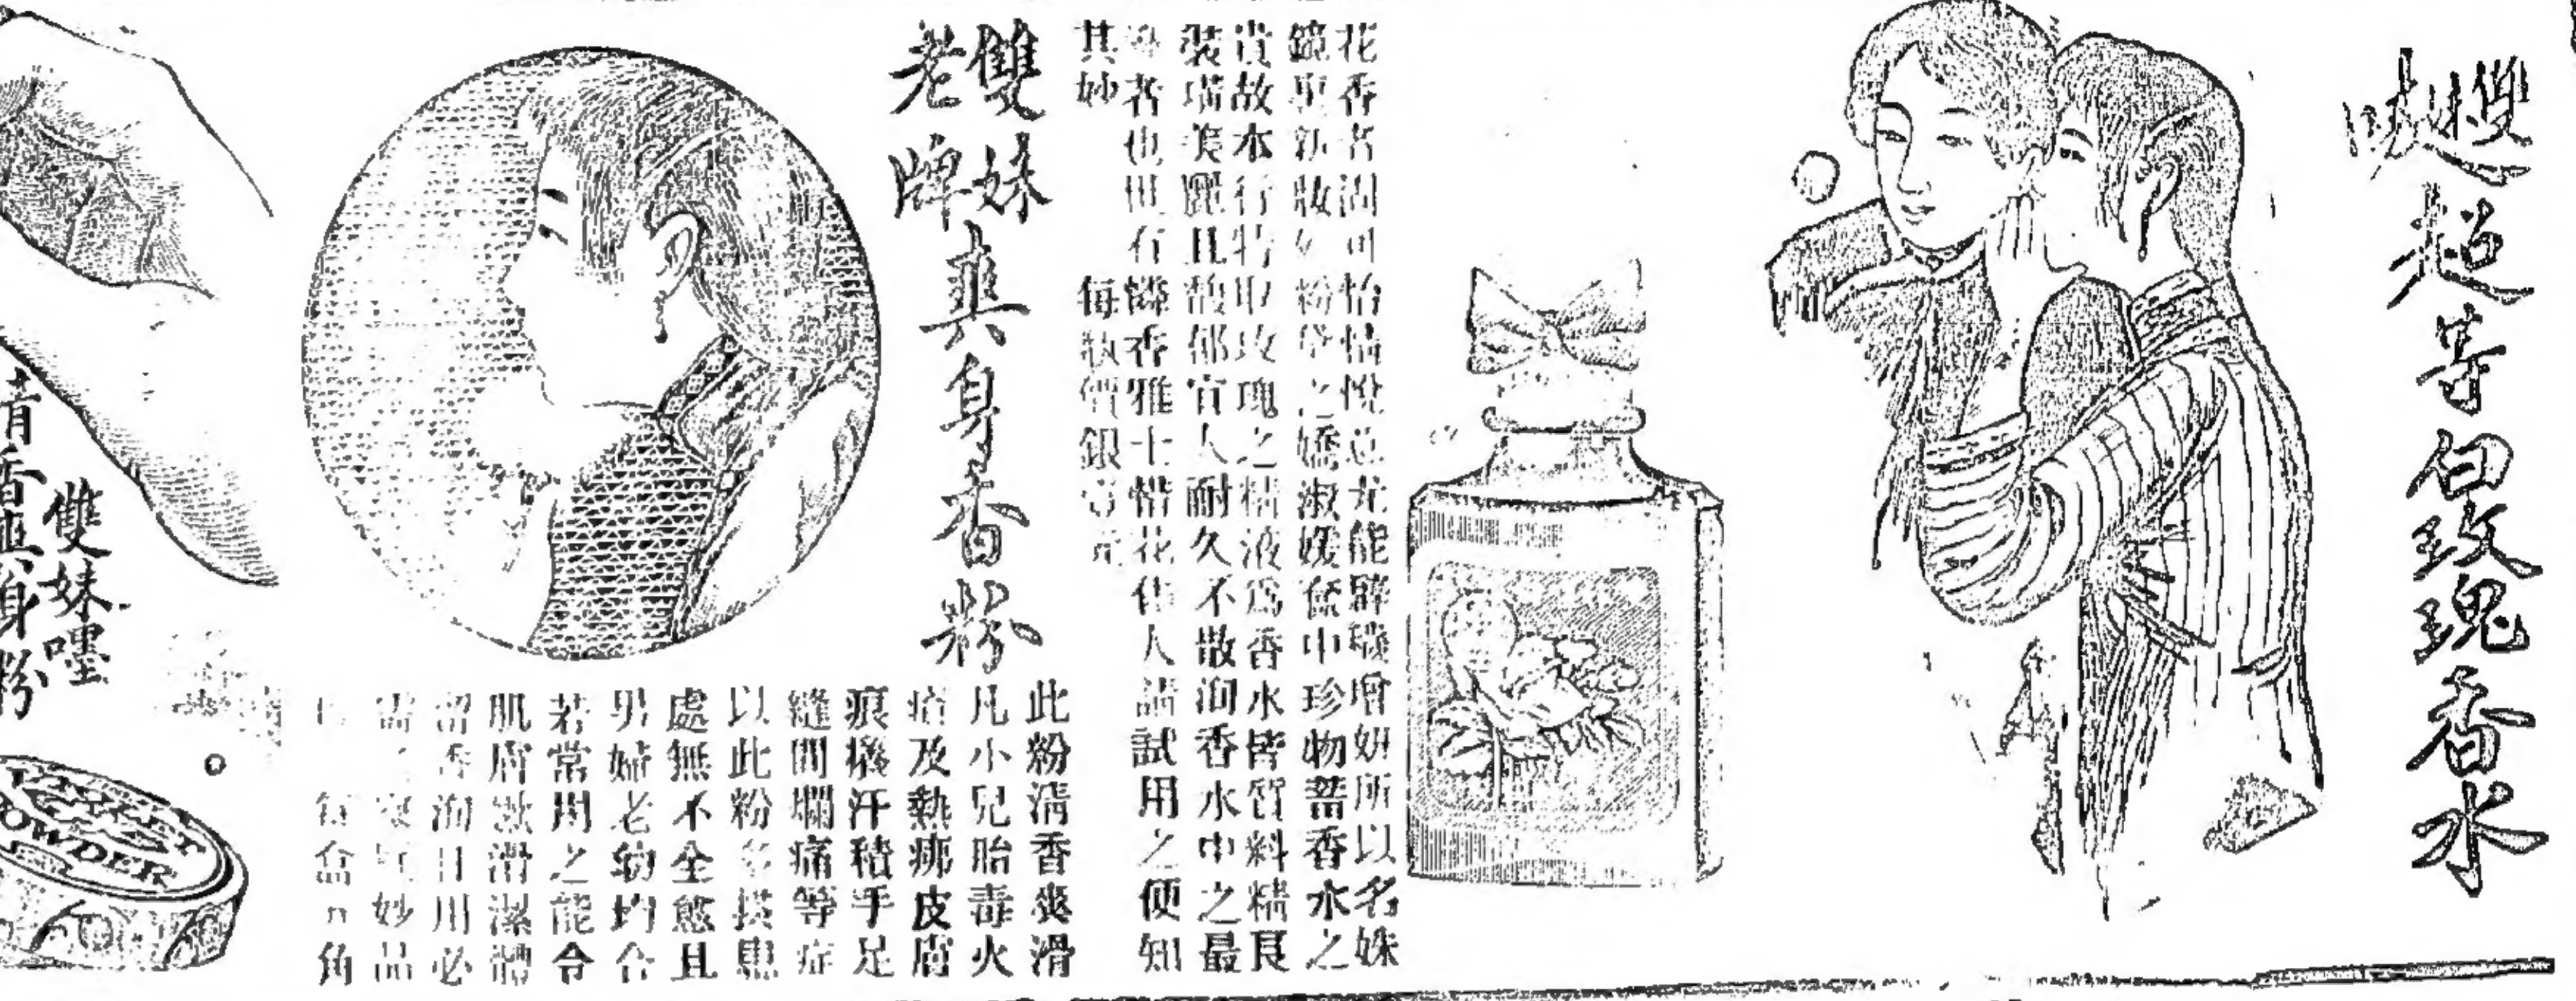 雙妹嘜
超等白玫瑰香水
花香者潤可怡情悅意尤能辟穢增妍所以名姝
鏡 新妝 粉 之嬌淑媛奩中珍物蓄香水之
貴故本行特取玫瑰之精液為香水皆質料精良
裝璜美麗且馥郁宜人耐久不散洵香水中之最
者也世有憐香雅士惜花佳人請試用之便知
其妙 每 價銀壹元
雙妹
老牌
爽身香粉
此粉清香爽滑
凡小兒胎毒火
疳及熱痱皮膚
痕癢汗積手足
縫間爛痛等症
以此粉 搽患
處無不全愈且
男婦老幼均合
若常用之能令
肌膚 滑潔體
留香洵日用必
需之 妙品
每盒 角
雙妹嚜
清香爽身粉
POWDER